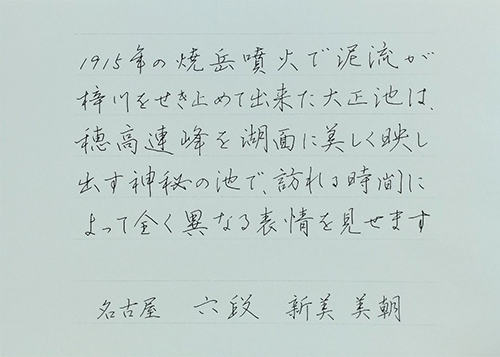 1915年の焼岳噴火で泥流が
梓川をせき止めて出来た大正池は、
穂高連峰を湖面に美しく映し
出す神秘の池で、訪れる時間に
よって全く異なる表情を見せます
名古屋 六段 新美 美朝